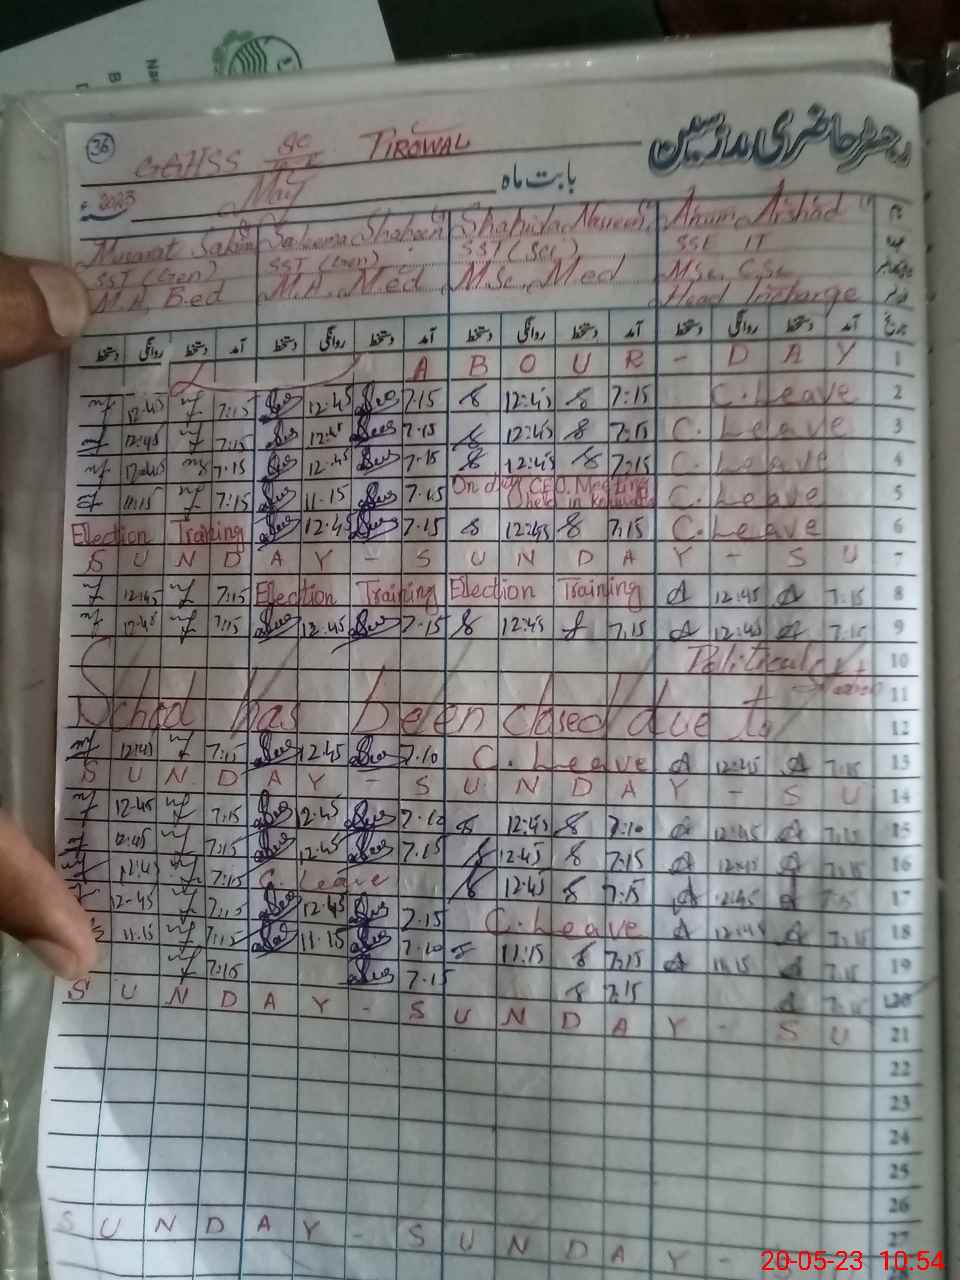 36
GGHSS TIROWAL
رجسٹر حاضری مدرسین
2023 May بابت ماہ
Musarat Salim Saleema Shaheen Shahida Nasreen Anum Arshad
SST (Gen) SST (Gen) SST (Sci) SSE IT
M.A, B.ed M.A, M.ed M.Sc, M.ed MSc. C.Sc
Head Incharge
دستخط روانگی دستخط آمد دستخط روانگی دستخط آمد دستخط روانگی دستخط آمد دستخط روانگی دستخط آمد تاریخ
L A B O U R - D A Y 1
12:45 7:15 12:45 7:15 12:45 7:15 C. Leave 2
12:45 7:15 12:45 7:15 12:45 7:15 C. Leave 3
12:45 7:15 12:45 7:15 12:45 7:15 C. Leave 4
11:15 7:15 11:15 7:15 On duty CEO. Meeting held in C. Leave 5
Election Training 12:45 7:15 12:45 7:15 C. Leave 6
S U N D A Y - S U N D A Y - S U 7
12:45 7:15 Election Training Election Training 12:45 7:15 8
12:45 7:15 12:45 7:15 12:45 7:15 12:45 7:15 9
Political 10
11
School has been closed due to 12
12:45 7:15 12:45 7:10 C. Leave 12:45 7:15 13
S U N D A Y - S U N D A Y - S U 14
12:45 7:15 12:45 7:10 12:45 7:10 12:45 7:15 15
12:45 7:15 12:45 7:15 12:45 7:15 12:45 7:15 16
12:45 7:15 C. Leave 12:45 7:15 12:45 7:15 17
12:45 7:15 12:45 7:15 C. Leave 12:45 7:15 18
11:15 7:15 11:15 7:10 11:15 7:15 11:15 7:15 19
7:15 7:15 7:15 7:15 20
S U N D A Y - S U N D A Y - S U 21
22
23
24
25
26
S U N D A Y - S U N D A Y - 27
20-05-23 10:54